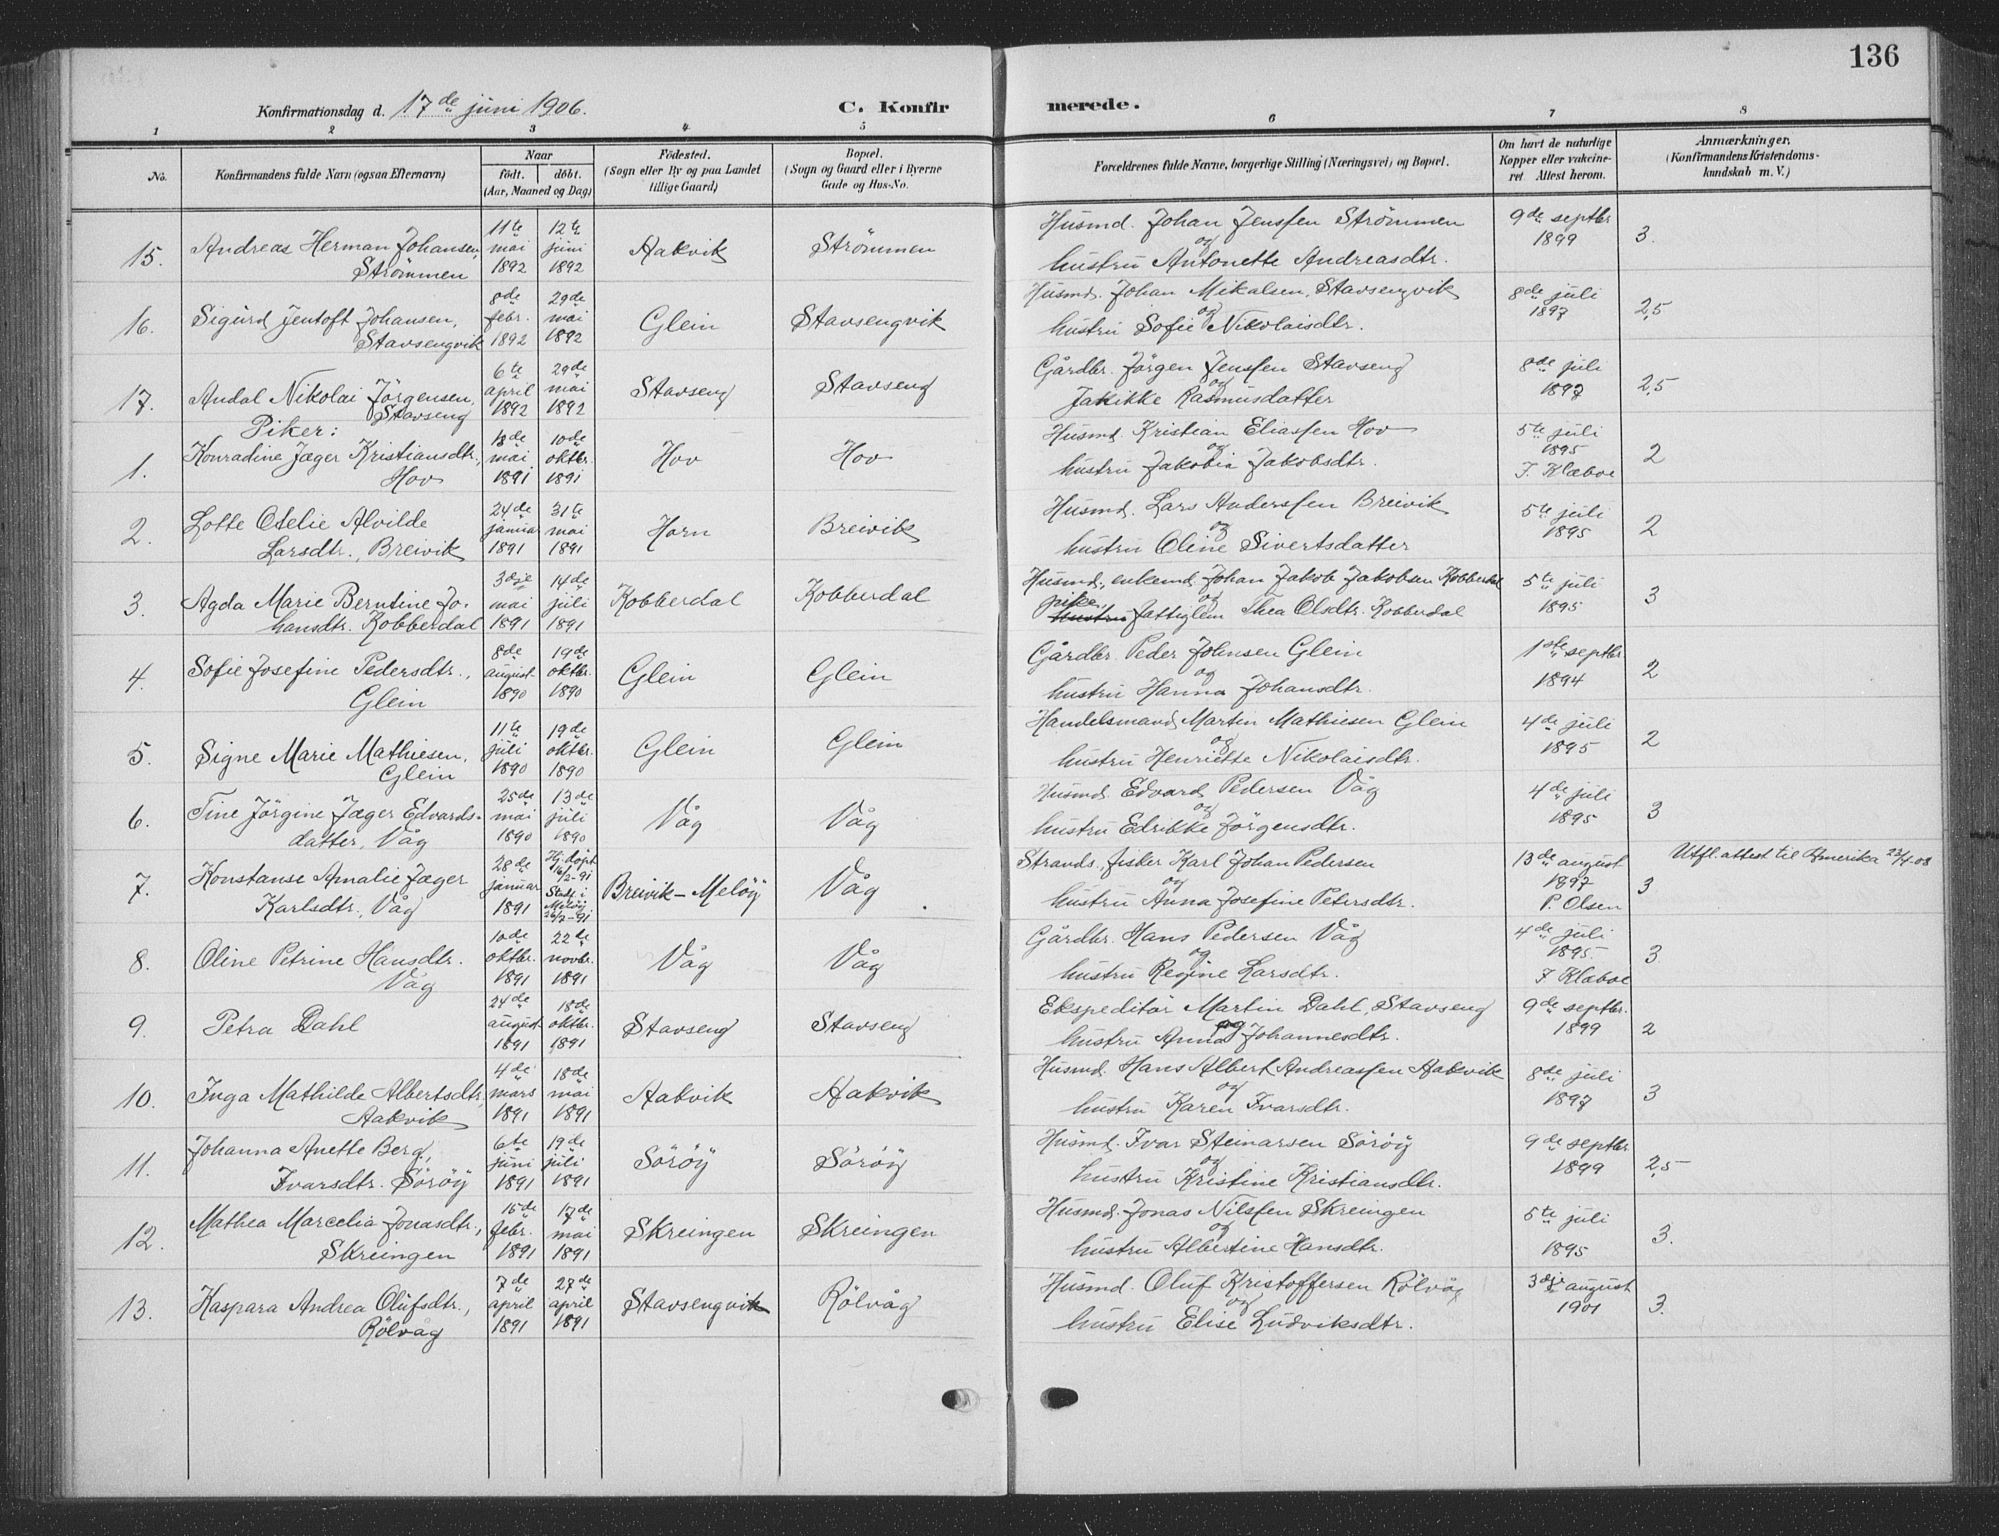 136
Konfirmationsdag d. 17de juni 1906.
C. Konfirmerede.
1 2 3 4 5 6 7 8
No.
Konfirmandens fulde Navn (ogsaa Efternavn)
Naar
født. døbt.
(Aar, Maaned og Dag)
Födested.
(Sogn eller By og paa Landet
tillige Gaard)
Bopæl.
(Sogn og Gaard eller i Byerne
Gade og Hus-No.
Forældrenes fulde Navne, borgerlige Stilling (Næringsvei) og Bopæl.
Om havt de naturlige
Kopper eller vakcine-
ret Attest herom.
Anmærkninger.
(Konfirmandens Kristendoms-
kundskab m. V.)
15. Andreas Herman Johansen, Strømmen
11te mai 1892
12te juni 1892
Aakvik
Strømmen
Husmd. Johan Jenssen Strømmen
og
hustru Antonette Andreasdtr.
9de septbr 1899
3.
16. Sigurd Jentoft Johansen, Stavsengvik
8de febr. 1892
29de mai 1892
Glein
Stavsengvik
Husmd. Johan Mikalsen, Stavsengvik
og
hustru Sofie Nikolaisdtr.
8de juli 1897
2,5
17. Andal Nikolai Jörgensen, Stavseng
6te april 1892
29de mai 1892
Stavseng
Stavseng
Gårdbr. Jörgen Jenssen Stavseng
og
Jakikke Rasmusdatter
8de juli 1897
2,5
Piker:
1. Konradine Jæger Kristiansdtr., Hov
13de mai 1891
10de oktbr. 1891
Hov
Hov
Husmd. Kristian Eliassen Hov
og
hustru Jakobia Jakobsdtr.
5te juli 1895
J. Klæboe
2
2. Lotte Otelie Alvilde
Larsdtr., Breivik
24de januar 1891
31te mai 1891
Horn
Breivik
Husmd. Lars Anderssen Breivik
og
hustru Oline Sivertsdatter
5te juli 1895
2
3. Agda Marie Berntine Jo-
hansdtr. Kobberdal
3dje mai 1891
14de juli 1891
Kobberdal
Kobberdal
Husmd., enkemd. Johan Jakob Jakobsen Kobberdal
og
pike, hustru fattiglem Thea Olsdtr. Kobberdal
5te juli 1895
3
4. Sofie Josefine Pedersdtr., Glein
8de august 1890
19de oktbr. 1890
Glein
Glein
Gårdbr. Peder Johnsen Glein
og
hustru Hanna Johansdtr.
1ste septbr 1894
2
5. Signe Marie Mathiesen, Glein
11te juli 1890
19de oktbr. 1890
Glein
Glein
Handelsmand Martin Mathiesen Glein
og
hustru Henriette Nikolaisdtr.
4de juli 1895
2
6. Tine Jörgine Jæger Edvards-
datter, Våg
25de mai 1890
13de juli 1890
Våg
Våg
Husmd. Edvard Pedersen Våg
og
hustru Edrikke Jörgensdtr.
4de juli 1895
3
7. Konstanse Amalie Jæger
Karlsdtr., Våg
28de januar 1891
Hj. döpt 16/2-91
Stadf. i Melöy
Breivik - Melöy
Våg
Strands., fisker Karl Johan Pedersen
og
hustru Anna Josefine Petersdtr.
13de august 1897
P. Olsen
3
Utfl. attest til Amerika 23/4-08
8. Oline Petrine Hansdtr. Våg
10de oktbr. 1891
22de novbr. 1891
Våg
Våg
Gårdbr. Hans Pedersen Våg
og
hustru Regine Larsdtr.
4de juli 1895.
J Klæboe
3
9. Petra Dahl
24de august 1891
18de oktbr. 1891
Stavseng
Stavseng
Ekspeditör Martin Dahl, Stavseng
og
hustru Anna Johannesdtr.
9de septbr. 1899
2
10. Inga Mathilde Albertsdtr, Aakvik
4de mars 1891
18de mai 1891
Aakvik
Aakvik
Husmd. Hans Albert Andreassen Aakvik
og
hustru Karen Ivarsdtr.
8de juli 1897
3
11. Johanna Anette Berg,
Ivarsdtr. Söröy
6te juni 1891
19de juli 1891
Söröy
Söröy
Husmd. Ivar Steinarsen Söröy
og
hustru Kristine Kristiansdtr.
9de septbr 1899
2,5
12. Mathea Marcelia Jonasdtr., Skreingen
15de febr. 1891
17de mai 1891
Skreingen
Skreingen
Husmd. Jonas Nilssen Skreingen
og
hustru Albertine Hansdtr.
5te juli 1895
3.
13. Kaspara Andrea Olufsdtr., Rölvåg
7de april 1891
27de april 1891
Stavsengvik
Rölvåg
Husmd. Oluf Kristoffersen Rölvåg
og
hustru Elise Ludviksdtr.
3dje august 1901
3.